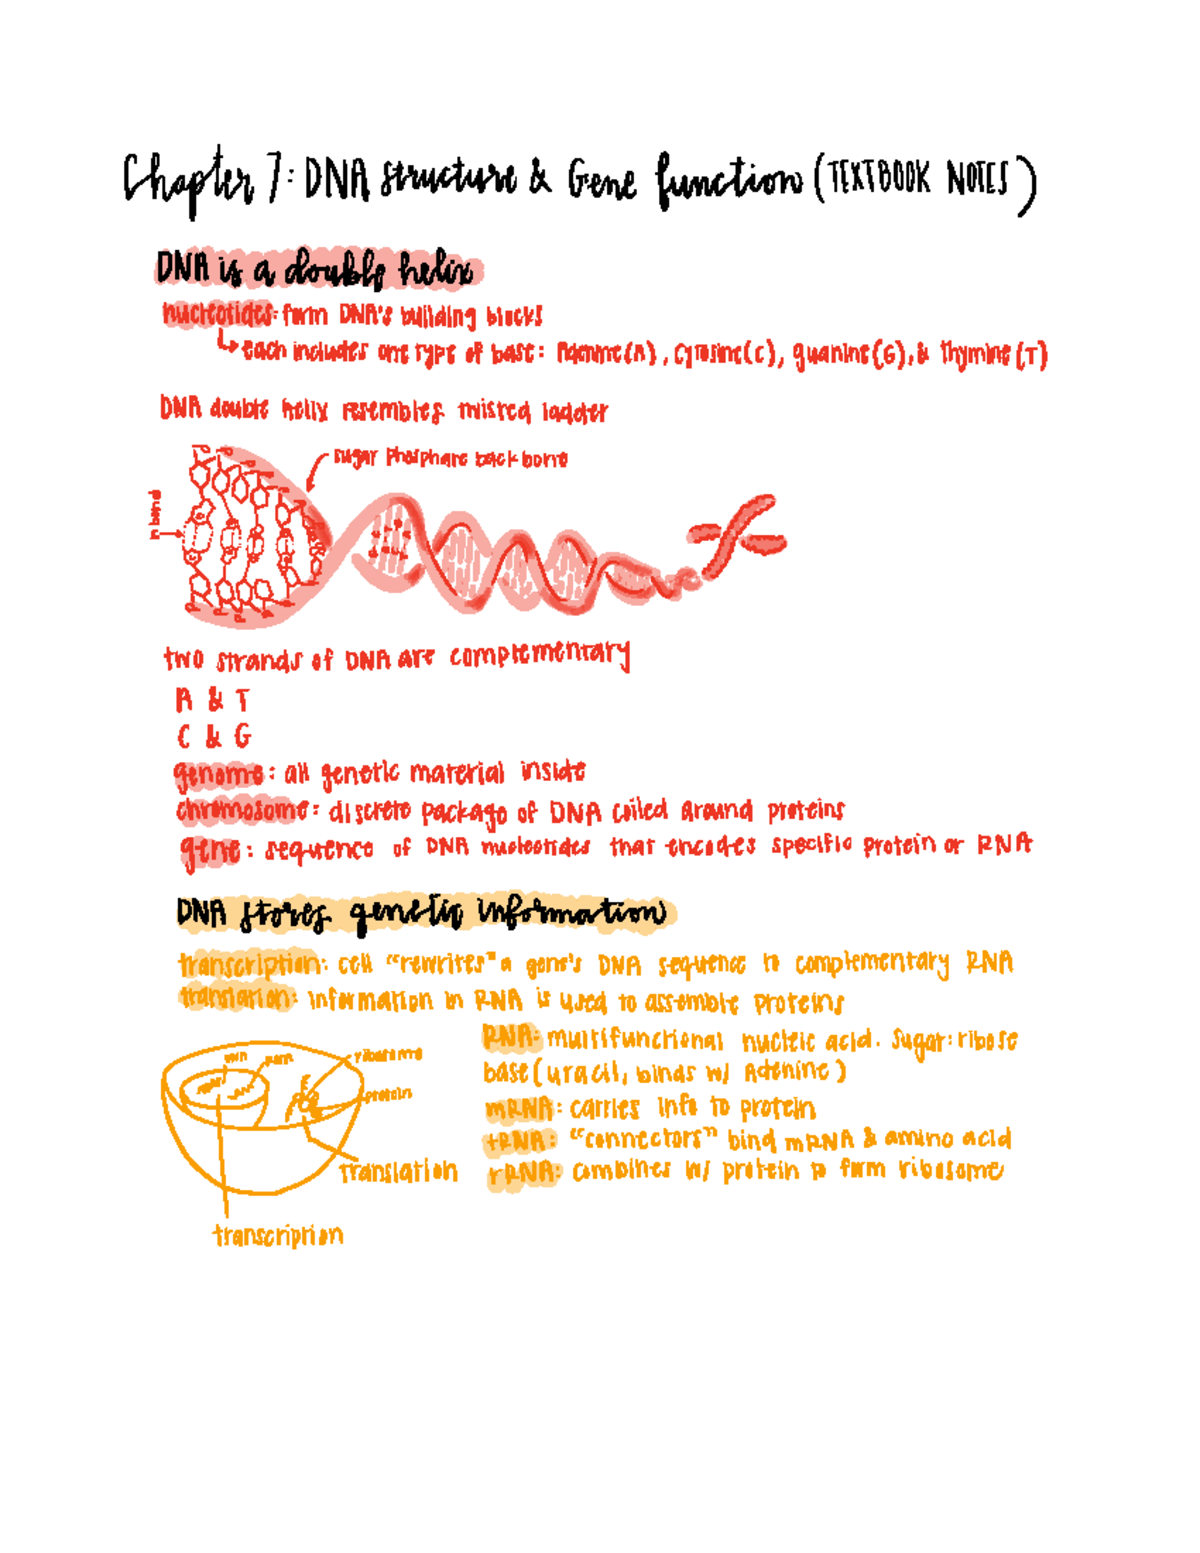 Chapter 7: DNA structure & Gene function (TEXTBOOK NOTES)
DNA is a double helix
nucleotides: form DNA's building blocks
↳ each includes one type of base: Adenine(A), cytosine(C), guanine(G), & thymine(T)
DNA double helix resembles twisted ladder
sugar phosphate backbone
H bond
two strands of DNA are complementary
A & T
C & G
genome: all genetic material inside
chromosome: discrete package of DNA coiled around proteins
gene: sequence of DNA nucleotides that encodes specific protein or RNA
DNA stores genetic information
transcription: cell "rewrites" a gene's DNA sequence to complementary RNA
translation: information in RNA is used to assemble proteins
RNA: multifunctional nucleic acid. Sugar: ribose
base (uracil, binds w/ Adenine)
mRNA: carries info to protein
tRNA: "connectors" bind mRNA & amino acid
rRNA: combines w/ protein to form ribosome
DNA
RNA
ribosome
protein
translation
transcription